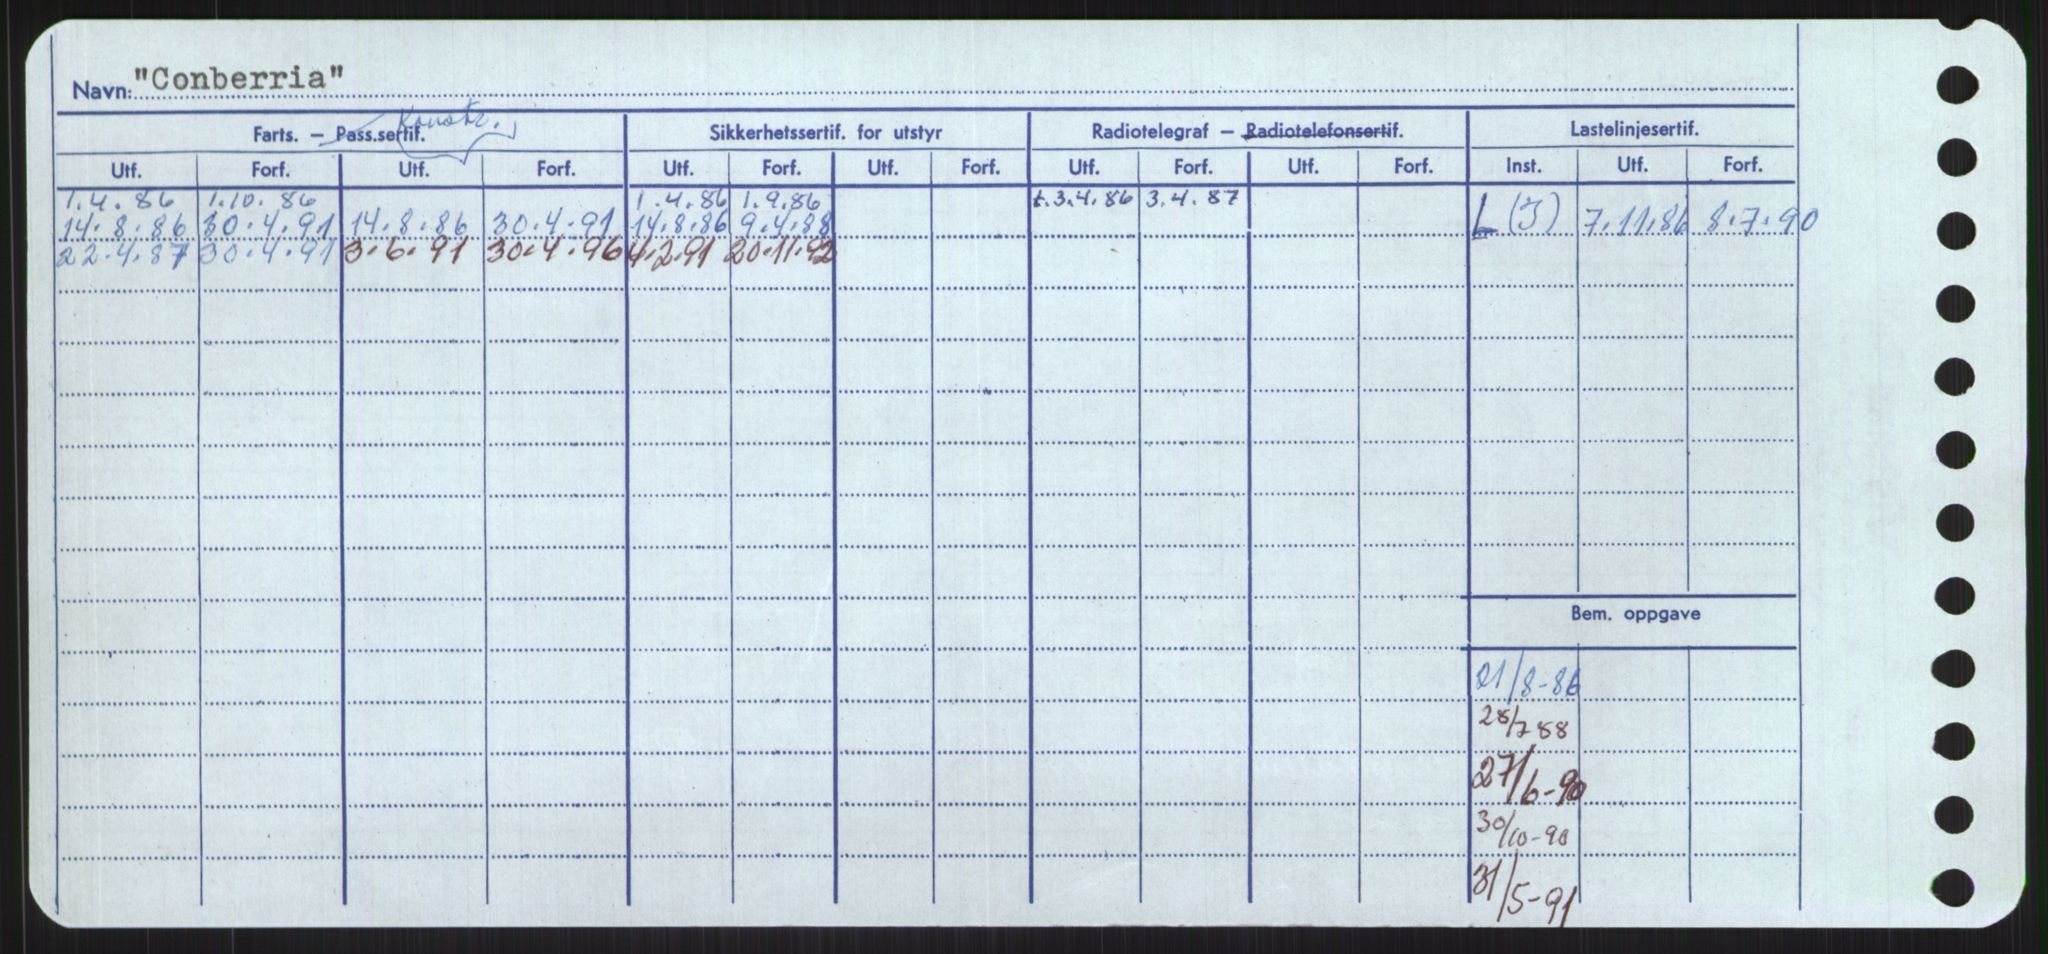 Navn: "Conberria"
Konstr.
Farts. — Pass.sertif. Sikkerhetssertif. for utstyr Radiotelegraf — Radiotelefonsertif. Lastelinjesertif.
Utf. Forf. Utf. Forf. Utf. Forf. Utf. Forf. Utf. Forf. Utf. Forf. Inst. Utf. Forf.
1.4.86 1.10.86 1.4.86 1.9.86 t.3.4.86 3.4.87
14.8.86 30.4.91 14.8.86 30.4.91 14.8.86 9.4.88 L (J) 7.11.86 8.7.90
22.4.87 30.4.91 3.6.91 30.4.96 4.2.91 20.11.92
Bem. oppgave
21/8-86
28/7 88
27/6-90
30/10-90
31/5-91